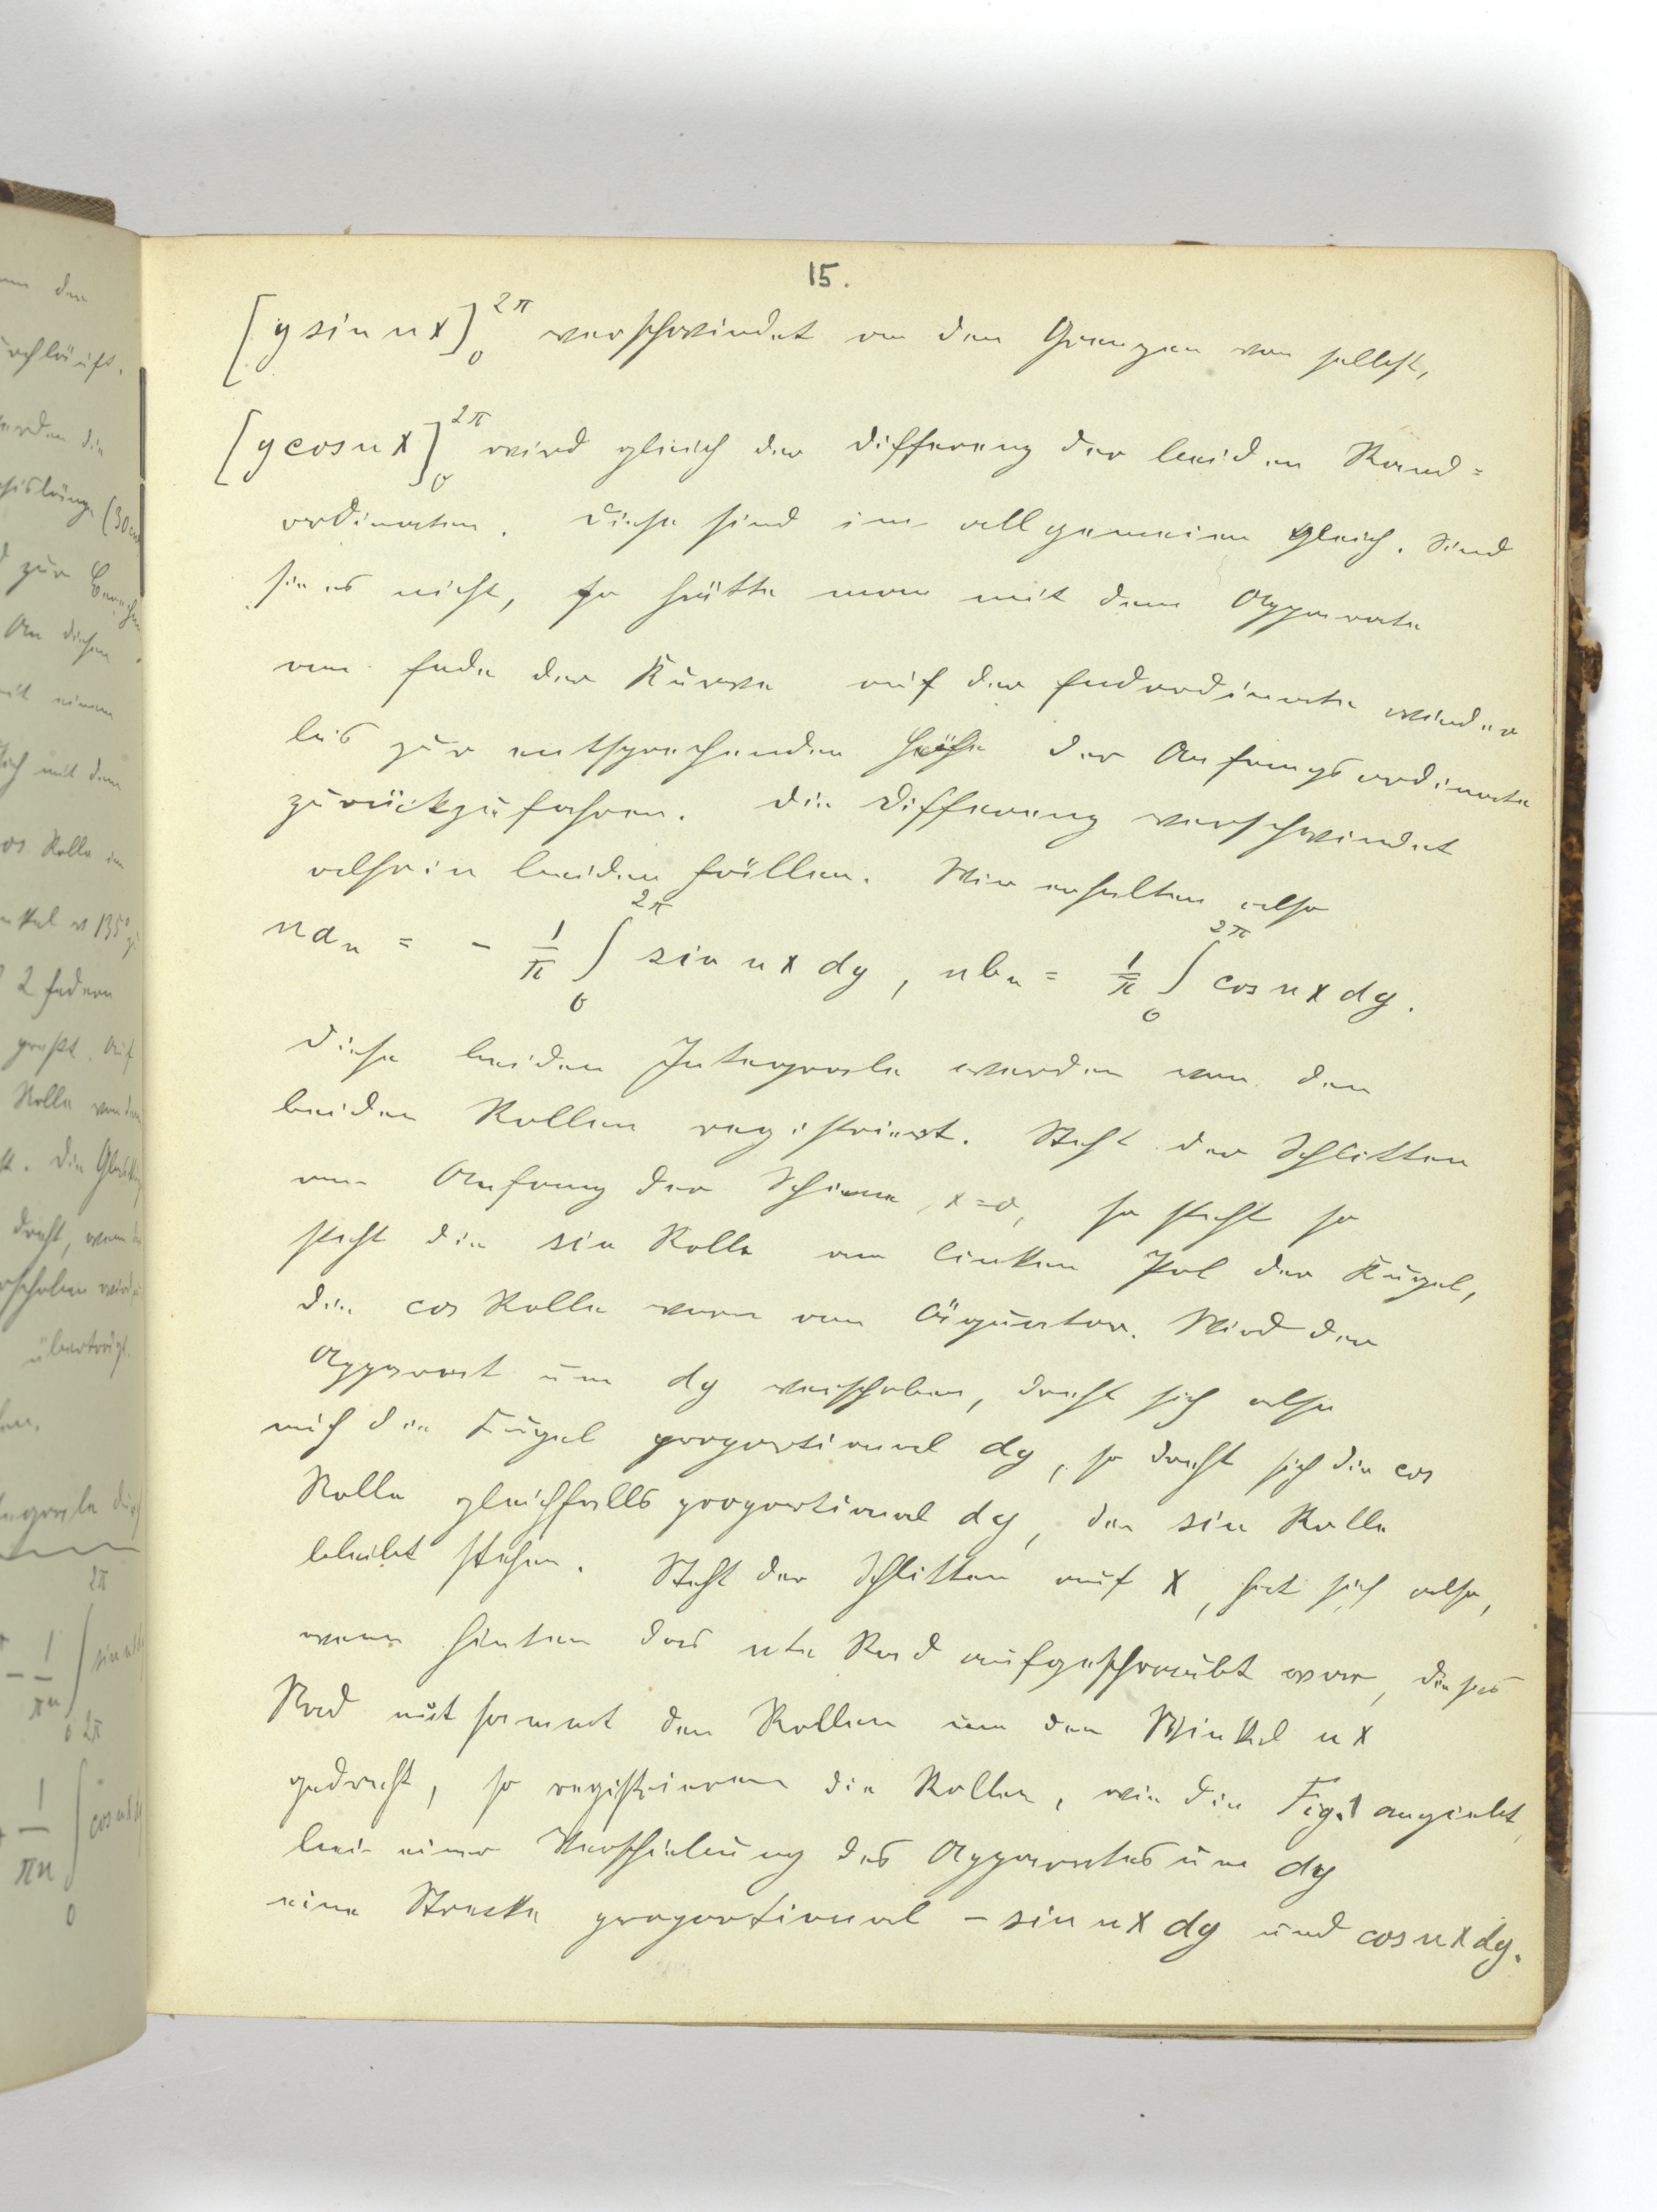 15.
[y sin n x]₀^2π verschwindet an den Grenzen von selbst,
[y cos n x]₀^2π wird gleich der Differenz der beiden Rand=
ordinaten. Diese sind im allgemeinen gleich. Sind
sie es nicht, so hätte man mit dem Apparate
am Ende der Kurve auf der Endordinate wieder
bis zur entsprechenden Höhe der Anfangsordinate
zurückzufahren. Die Differenz verschwindet
also in beiden Fällen. Wir erhalten also
n aₙ = - 1/π ∫₀^2π sin n x dy, n bₙ = 1/π ∫₀^2π cos n x dy.
Diese beiden Integrale werden von den
beiden Rollen registriert. Steht der Schlitten
am Anfang der Schiene, x=0, so steht so
steht die sin Rolle am linken Pol der Kugel,
die cos Rolle vorn am Äquator. Wird der
Apparat um dy verschoben, dreht sich also
auch die Kugel proportional dy, so dreht sich die cos
Rolle gleichfalls proportional dy, die sin Rolle
bleibt stehen. Steht der Schlitten auf x, hat sich also,
wenn hinten das nte Rad aufgeschraubt war, dieses
Rad mit sammt den Rollen um den Winkel n x
gedreht, so registrieren die Rollen, wie die Fig. 1 angiebt,
bei einer Verschiebung des Apparates um dy
eine Strecke proportional - sin n x dy und cos n x dy.